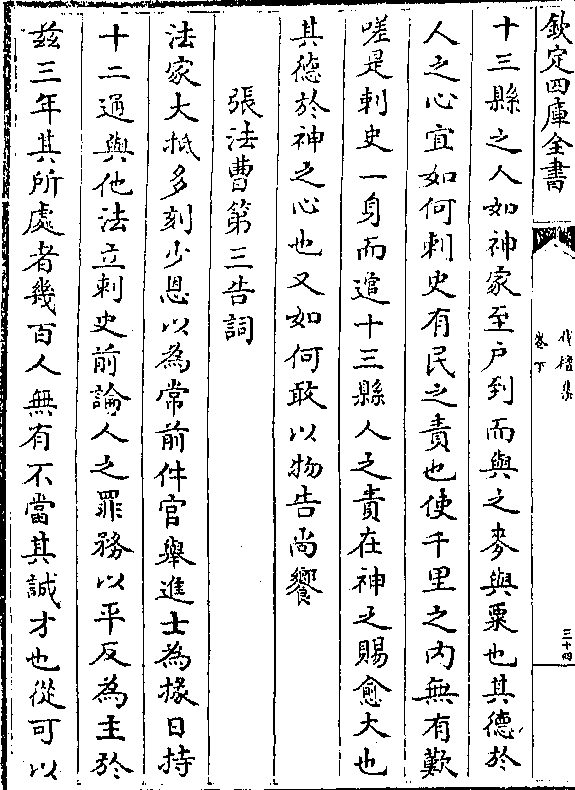 欽定四庫全書
伐檀集
卷下
三十四
十三縣之人如神家至户到而與之麥與粟也其德於
人之心宜如何刺史有民之責也使千里之内無有歎
嗟是刺史一身而逭十三縣人之責在神之賜愈大也
其德於神之心也又如何敢以物告尚饗
張法曹第三告詞
法家大抵多刻少恩以為常前件官舉進士為掾日持
十二通與他法立刺史前論人之罪務以平反為主於
兹三年其所處者幾百人無有不當其誠才也從可以